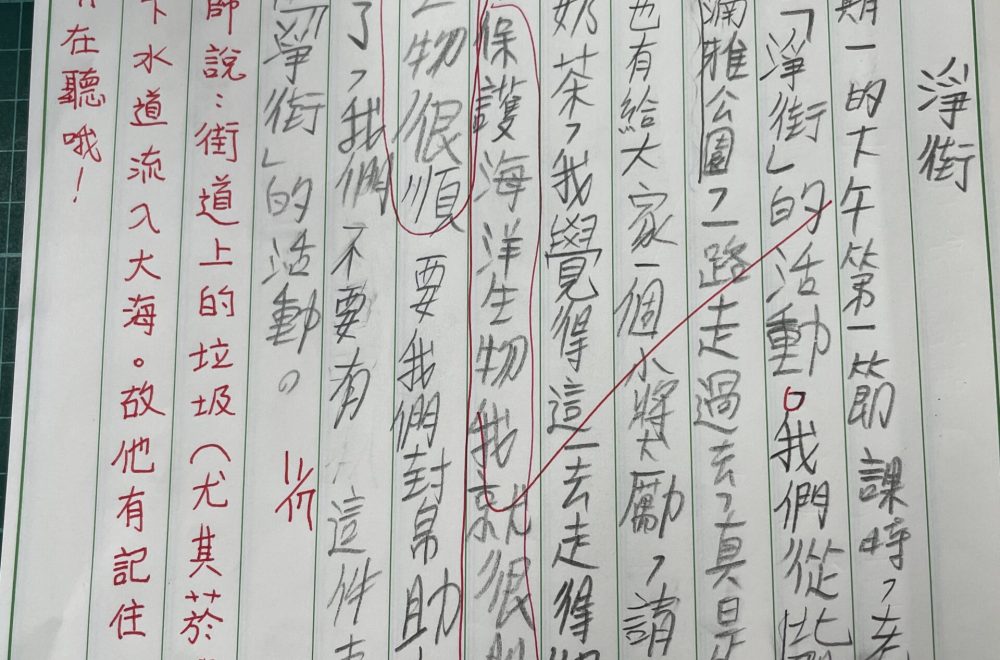 淨街
期一的大午第一節課時，老
「淨街」的活動。我們從此
湳雅公園，一路走過去，真是
也有給大家一個小獎勵，請
奶茶，我覺得這一去走得
保護海洋生物我就很
生物很順要我們封帛助
了，我們不要有這件
「淨街」的活動。
11/17
師說：街道上的垃圾（尤其菸
下水道流入大海。故他有記住
有在聽哦！